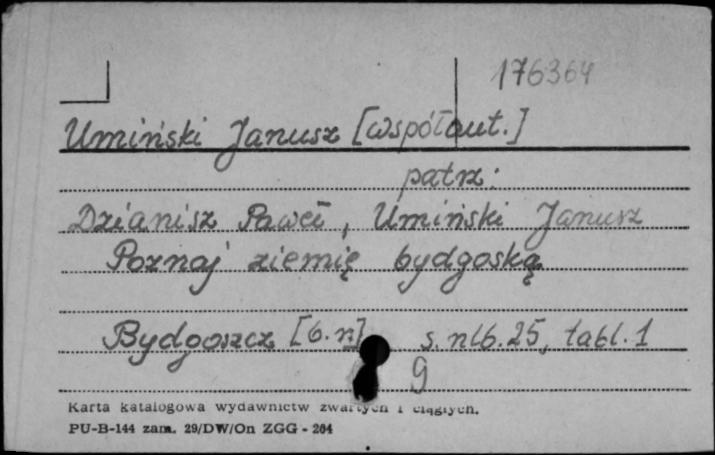 176364
Umiński Janusz [współaut.]
patrz:
Dzianisz Paweł, Umiński Janusz
Poznaj ziemię bydgoską
Bydgoszcz [b.r.] s. nlb. 25, tabl. 1
9
Karta katalogowa wydawnictw zwartych i ciągłych.
PU-B-144 zam. 29/DW/On ZGG - 264